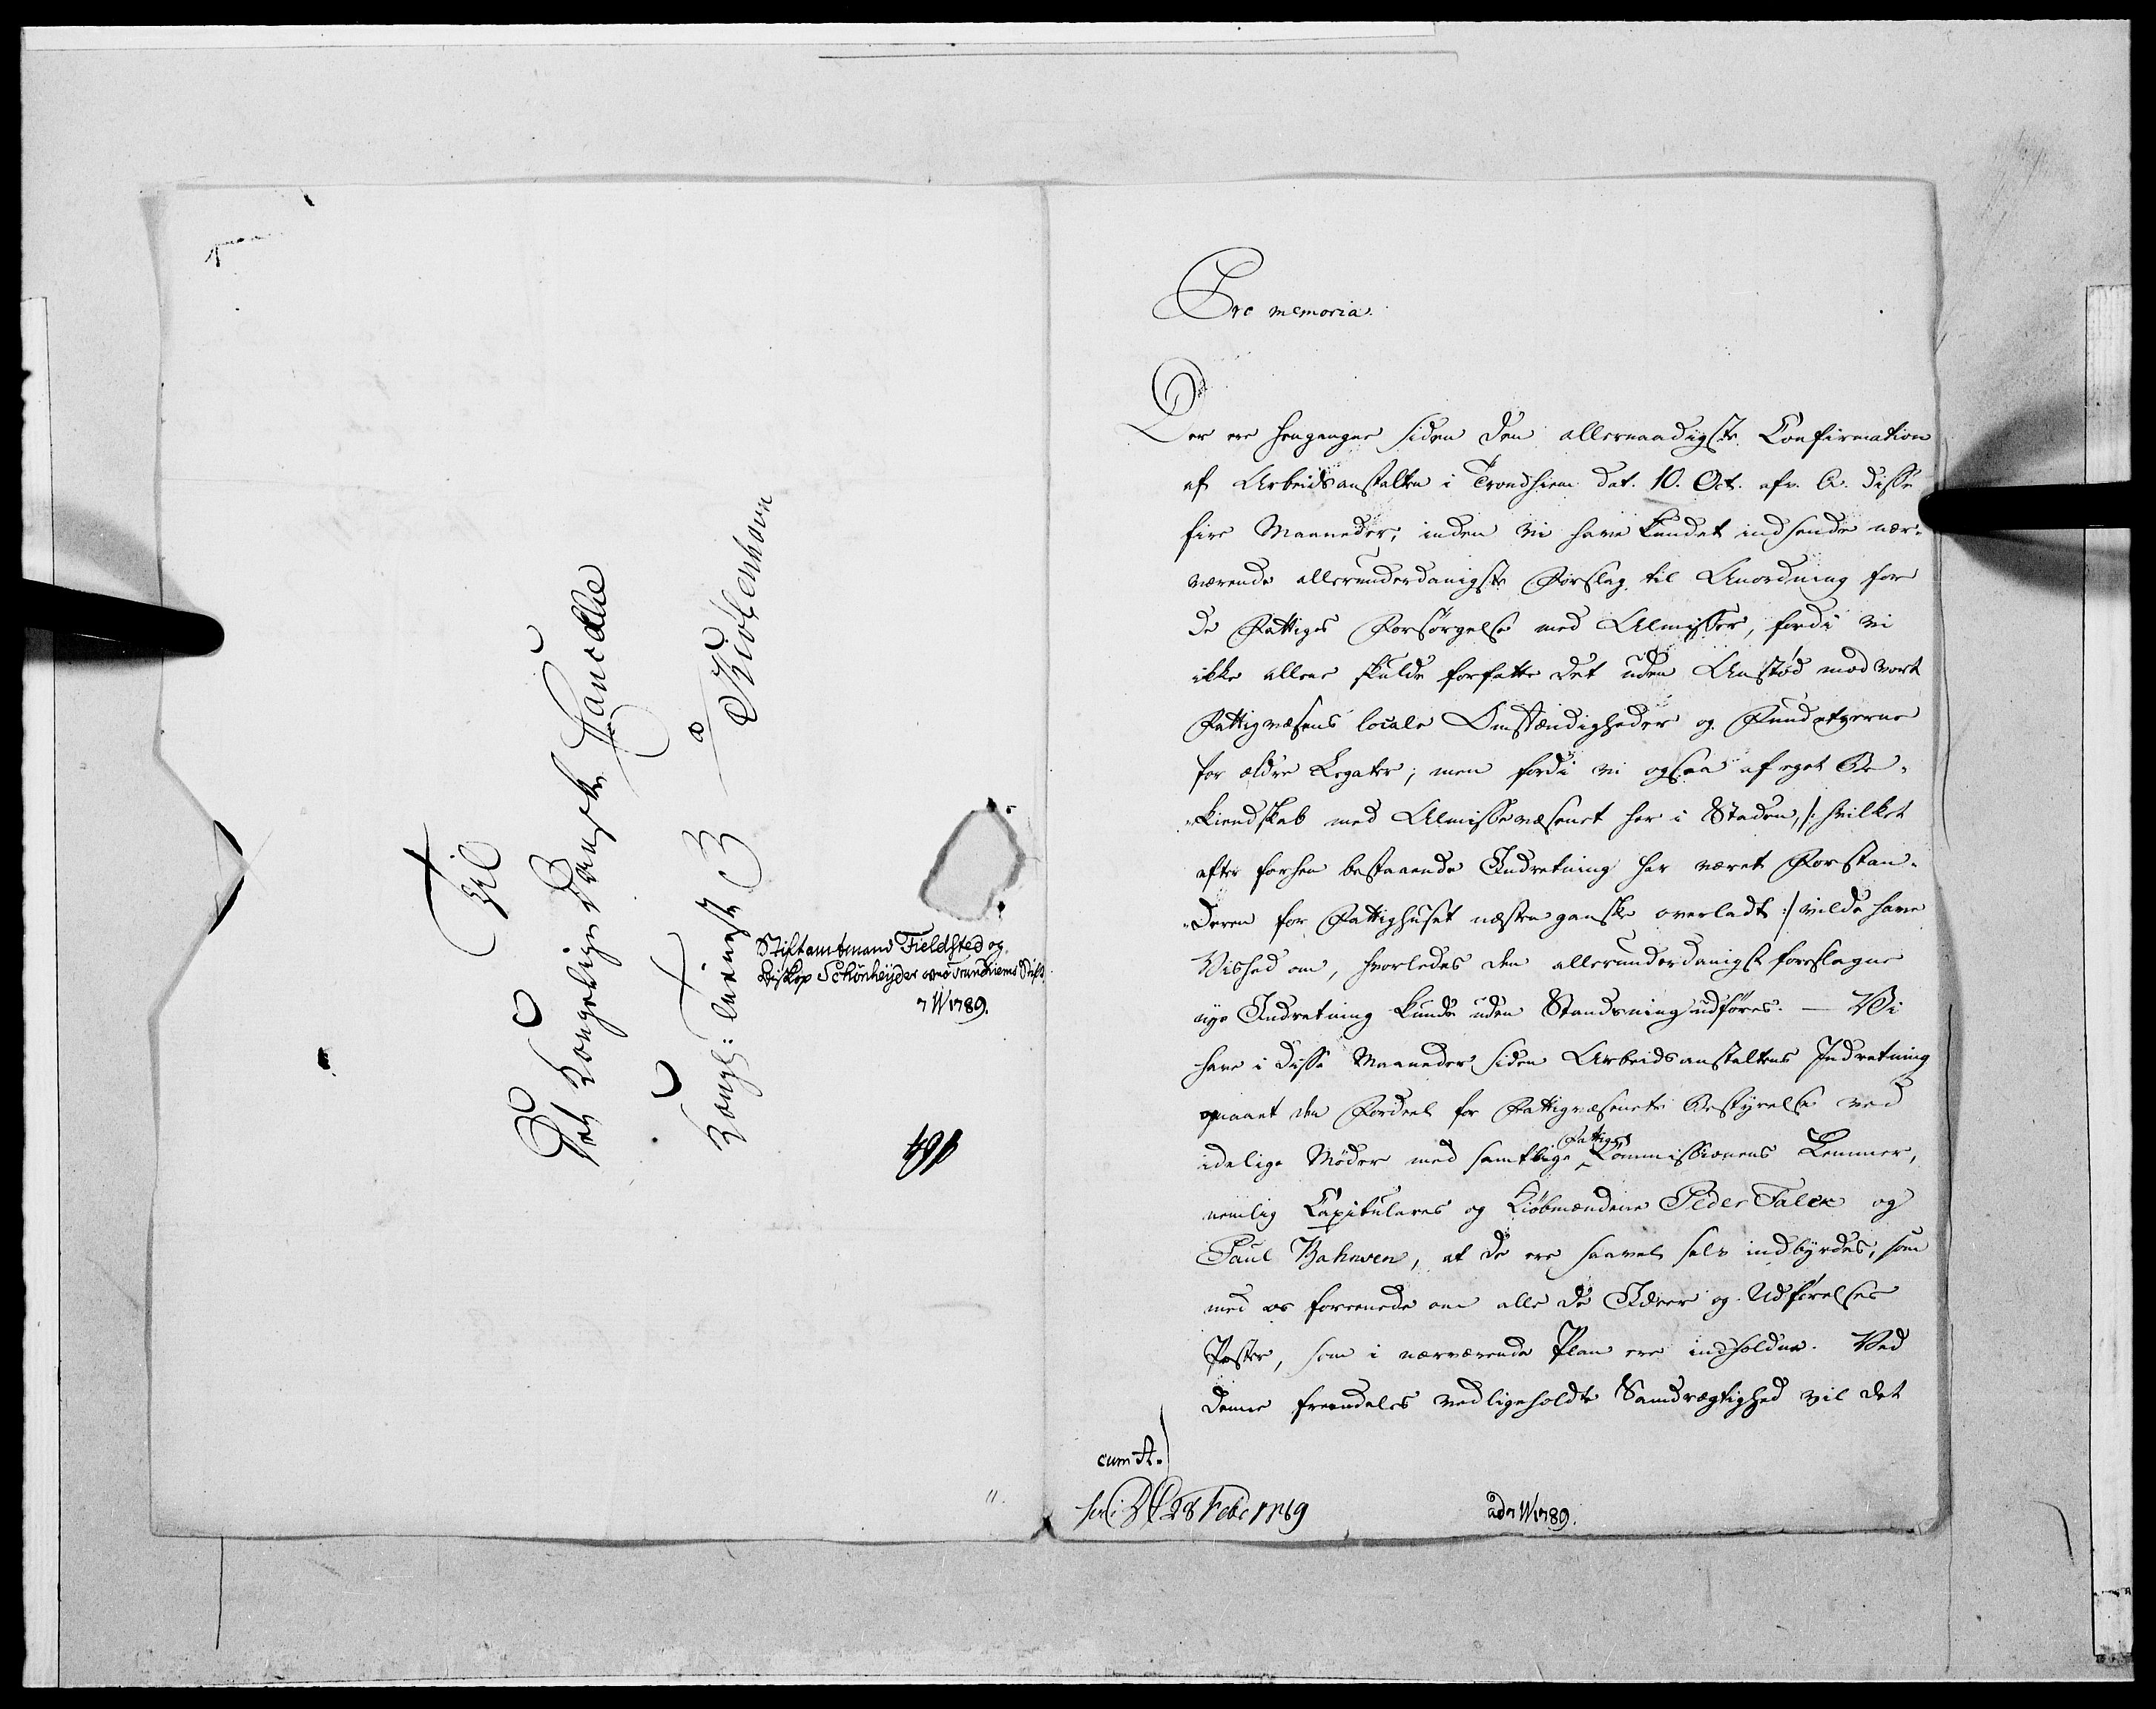 Til
Det Kongelige Danske Cancellie
a
Kiøbenhavn
Kongl: Tieniste
Stiftamtmand Fieldsted og
Biskop Schönheyder over Trundhiems Stift
7 W 1789.
Pro memoria.
Der ere hengangne siden den allernaadigste Confirmation
af Arbeidsanstalten i Trondhiem dat. 10. Oct. afv. A. disse
fire Maaneder; inden vi have kundet indsende nær-
værende allerunderdanigste Forslag til Anordning for
de Fattiges Forsørgelse med Almisser, fordi vi
ikke allene skulde forfatte det uden Anstød mod vort
Fattigvæsens locale Omstændigheder og Fundatzerne
for ældre Legater; men fordi vi ogsaa af eget Be-
-kiendskab med Almissevæsenet her i Staden, /: hvilket
efter forhen bestaaende Indretning har været Forstan-
-deren for Fattighuset næsten ganske overladt :/ vilde have
Vished om, hvorledes den allerunderdanigst foreslagne
nye Indretning kunde uden Standsning udføres. — Vi
have i disse Maaneder siden Arbeidsanstaltens Indretning
opnaaet den Fordeel for Fattigvæsenets Bestyrelse ved
idelige Møder med samtlige Fattig Commissionens Lemmer,
nemlig Capitulares og Kiøbmændene Peder Falck og
Paul, at de ere saavel selv indbyrdes, som
med os foreenede om alle de Ideer og Udførelses
Poster, som i nærværende Plan ere indholdne. Ved
denne fremdeles vedligeholdte Samdrægtighed vil det
cum A.
28 Febr 1789
ad 7 W 1789.